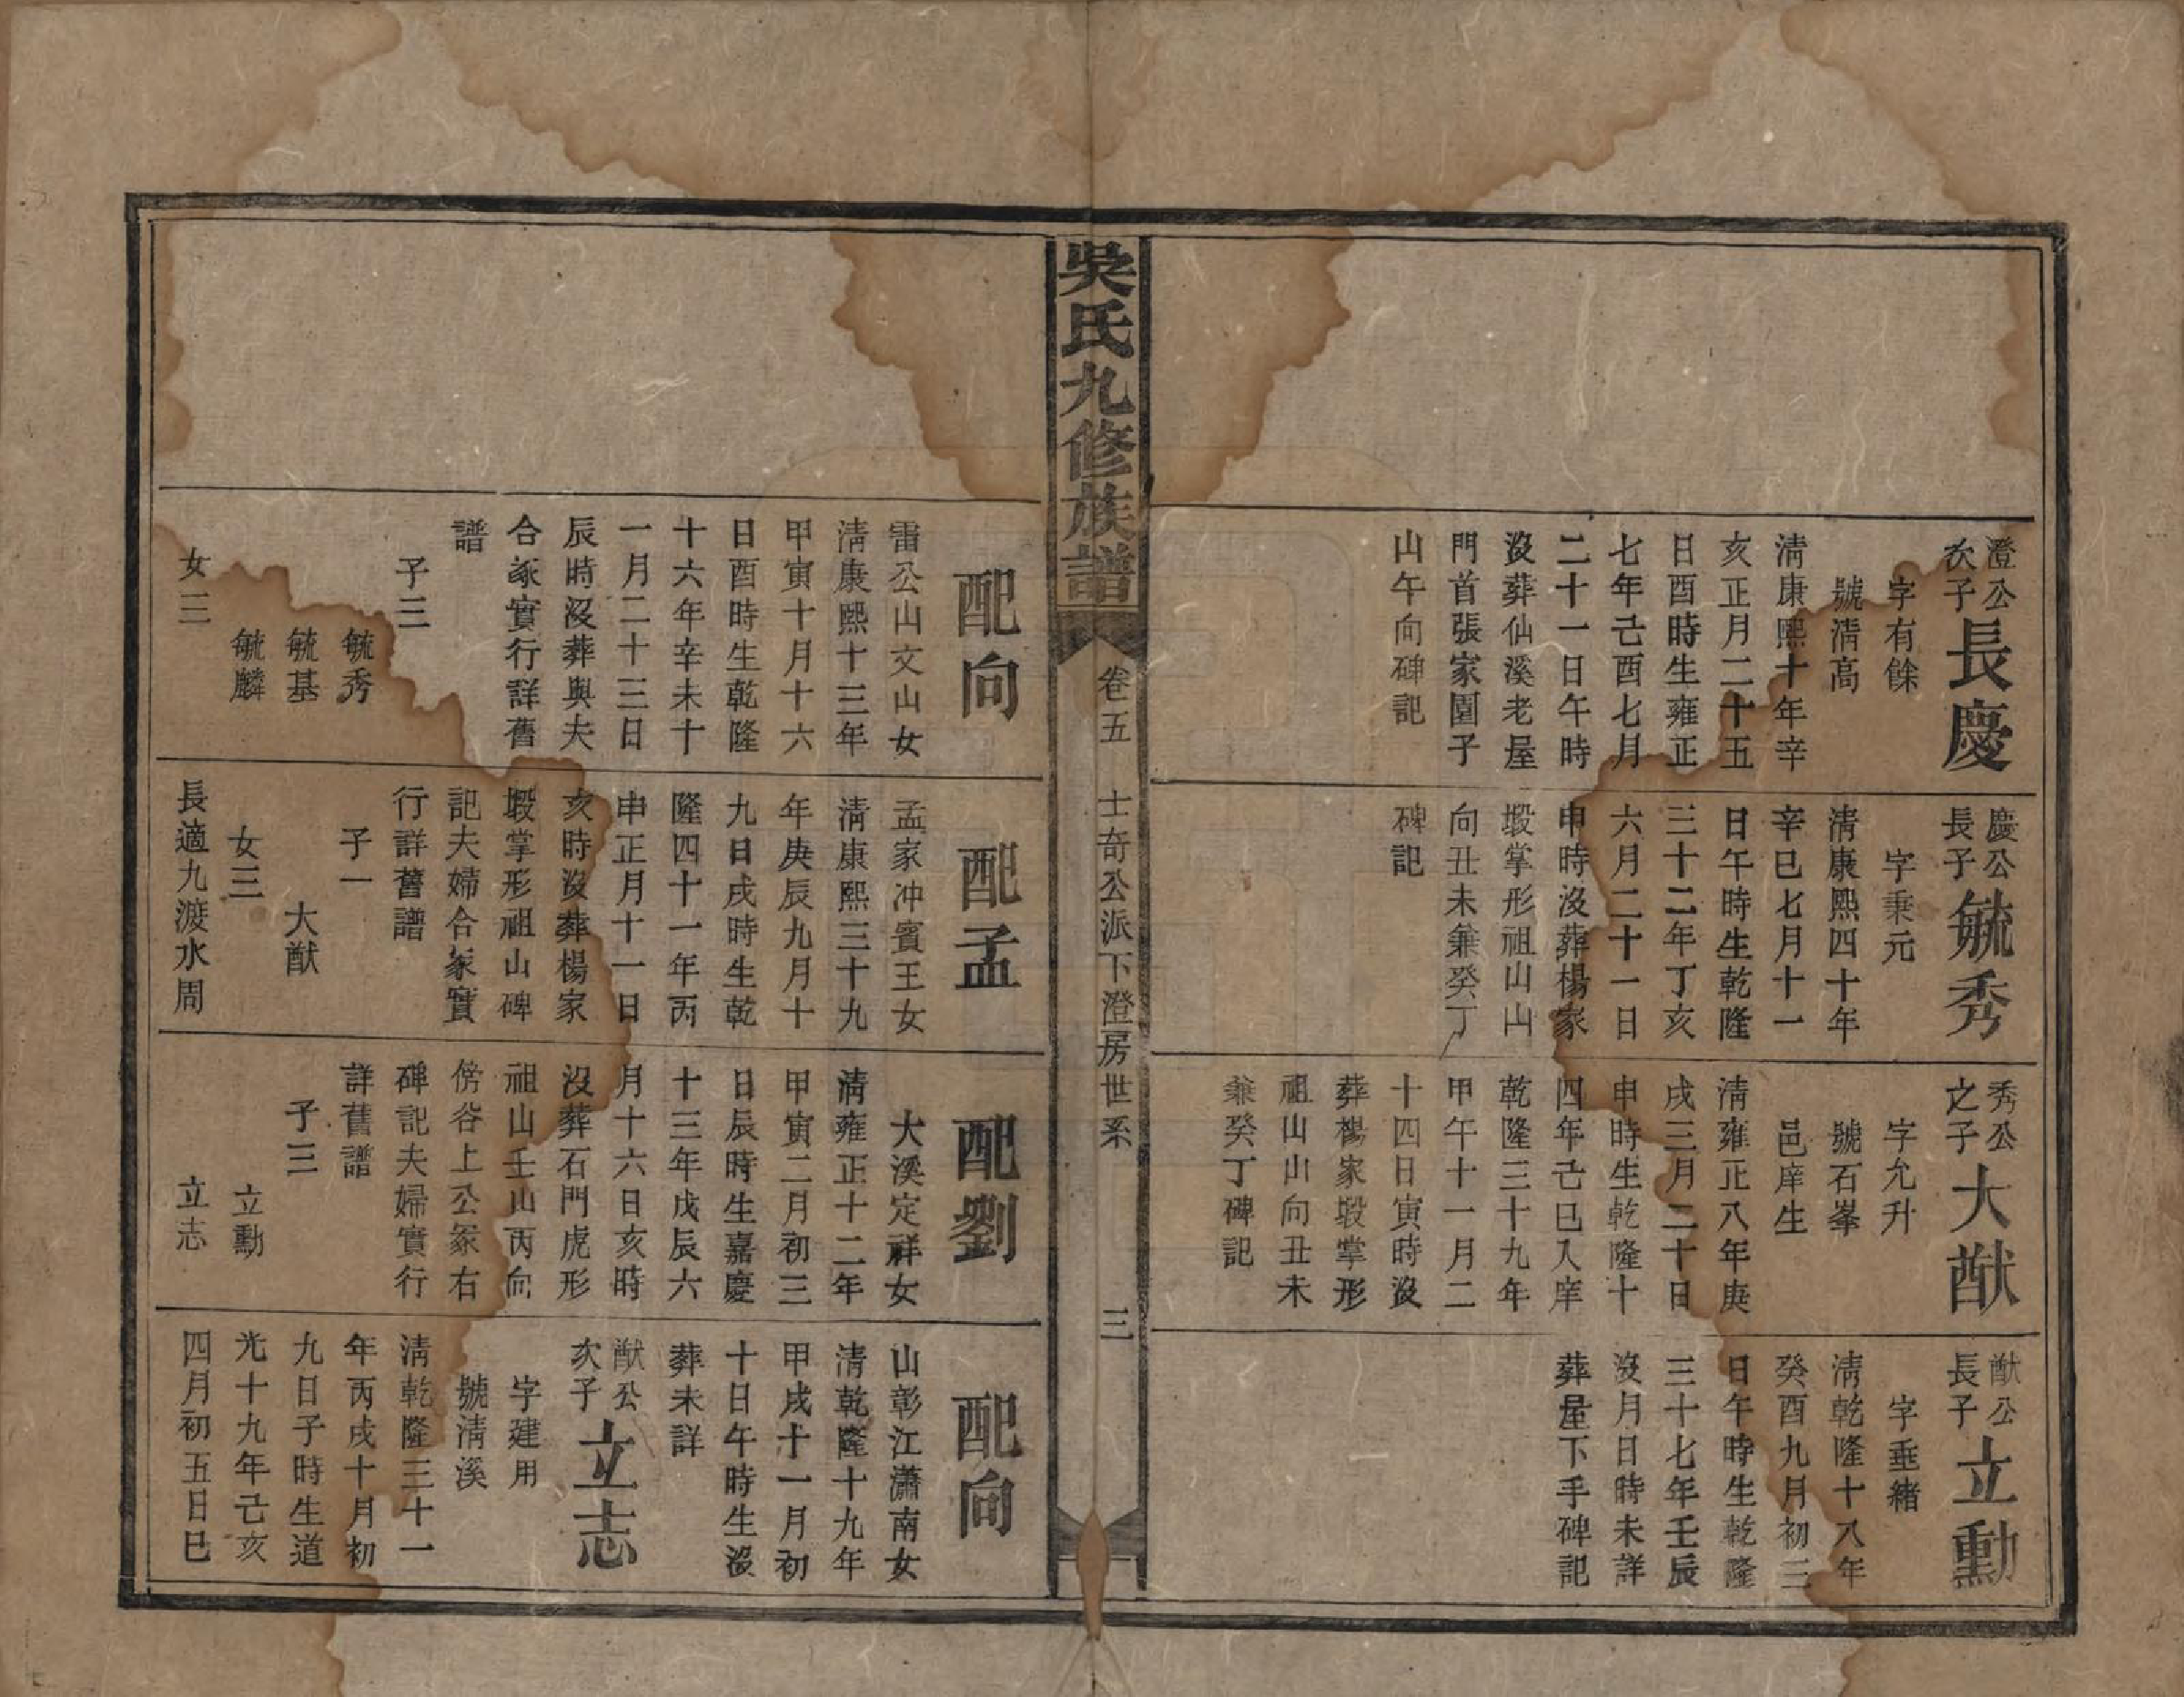 澄公
次子
長慶
字有餘
號淸高
淸康熙十年辛
亥正月二十五
日酉時生雍正
七年己酉七月
二十一日午時
沒葬仙溪老屋
門首張家園子
山午向碑記
慶公
長子
毓秀
字秉元
淸康熙四十年
辛巳七月十一
日午時生乾隆
三十二年丁亥
六月二十一日
申時沒葬楊家
塅掌形祖山山
向丑未兼癸丁
碑記
秀公
之子
大猷
字允升
號石峯
邑庠生
淸雍正八年庚
戌三月二十日
申時生乾隆十
四年己巳入庠
乾隆三十九年
甲午十一月二
十四日寅時沒
葬楊家塅掌形
祖山山向丑未
兼癸丁碑記
猷公
長子
立勳
字垂緒
淸乾隆十八年
癸酉九月初三
日午時生乾隆
三十七年壬辰
沒月日時未詳
葬屋下手碑記
吳氏九修族譜
卷五
士奇公派下澄房世系
三
配向
雷公山文山女
淸康熙十三年
甲寅十月十六
日酉時生乾隆
十六年辛未十
一月二十三日
辰時沒葬與夫
合冡實行詳舊
譜
子三
毓秀
毓基
毓麟
女三
配孟
孟家冲賓王女
淸康熙三十九
年庚辰九月十
九日戌時生乾
隆四十一年丙
申正月十一日
亥時沒葬楊家
塅掌形祖山碑
記夫婦合冡實
行詳舊譜
子一
大猷
女三
長適九渡水周
配劉
大溪定祥女
淸雍正十二年
甲寅二月初三
日辰時生嘉慶
十三年戊辰六
月十六日亥時
沒葬石門虎形
祖山壬山丙向
傍谷上公冡右
碑記夫婦實行
詳舊譜
子三
立勳
立志
配向
山彰江瀟南女
淸乾隆十九年
甲戌十一月初
十日午時生沒
葬未詳
猷公
次子
立志
字建用
號淸溪
淸乾隆三十一
年丙戌十月初
九日子時生道
光十九年己亥
四月初五日巳